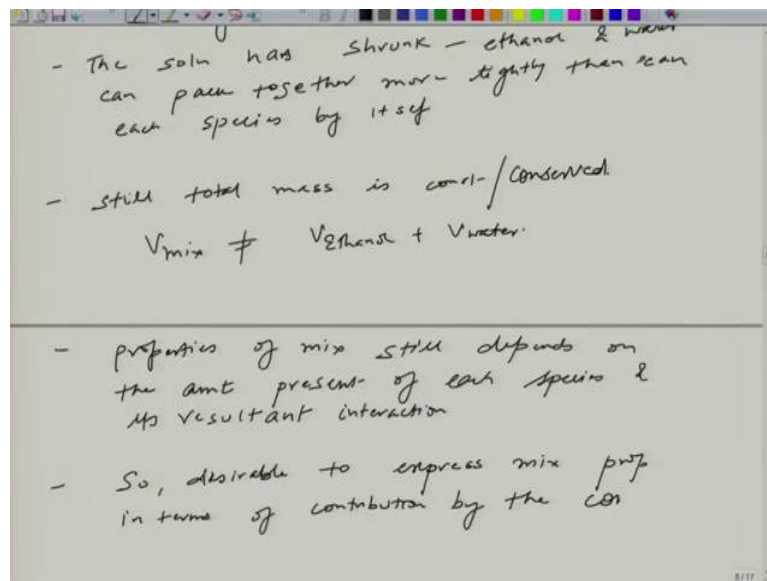 - The soln has shrunk - ethanol & water
can pack together more tightly than can
each species by itself
- still total mass is const/conserved.
Vmix ≠ VEthanol + Vwater.
- properties of mix still depends on
the amt present of each species &
its resultant interaction
- So, desirable to express mix prop
in terms of contribution by the con
8/17